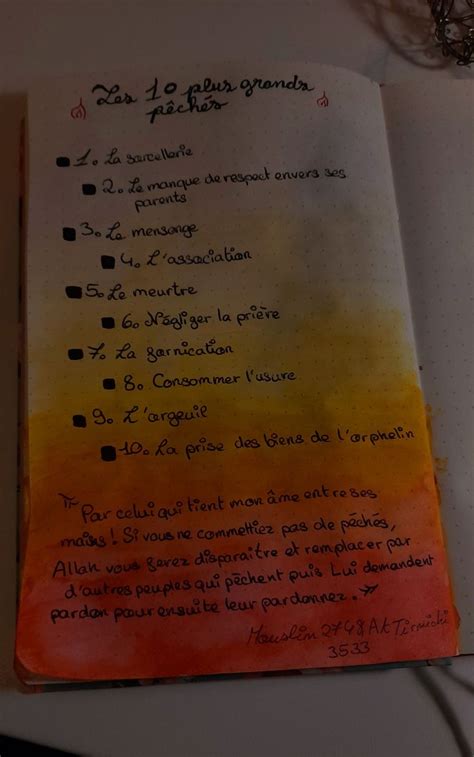 Les 10 plus grands
péchés
1. La sorcellerie
2. Le manque de respect envers ses
parents
3. Le mensonge
4. L'association
5. Le meurtre
6. Négliger la prière
7. La fornication
8. Consommer l'usure
9. L'orgeuil
10. La prise des biens de l'orphelin
« Par celui qui tient mon âme entre ses
mains ! Si vous ne commettiez pas de péchés,
Allah vous ferez disparaitre et remplacer par
d'autres peuples qui pêchent puis Lui demandent
pardon pour ensuite leur pardonnez. »
Mouslim 2748 At Tirmidhi
3533